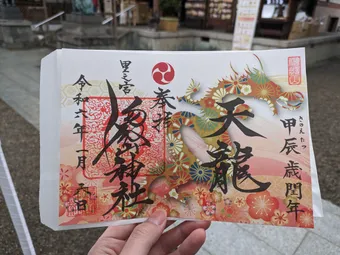 甲辰歳閏年
きのえたつ
天龍
奉拝
里之宮
神社
令和六年一月六日